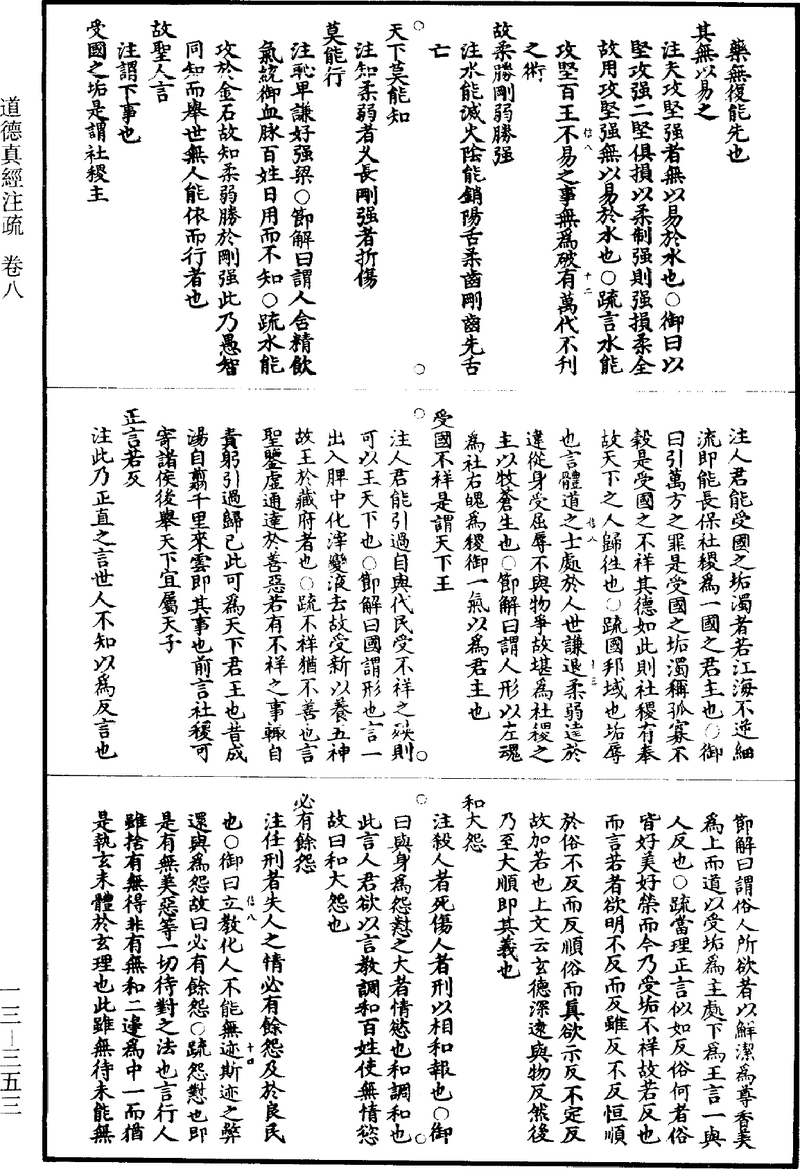 道德真經注疏　卷八
一三—三五三
藥無復能先也
其無以易之
注夫攻堅强者無以易於水也○御曰以
堅攻强二堅俱損以柔制强則强損柔全
故用攻堅强無以易於水也○疏言水能
攻堅百王不易之事無爲破有萬代不刋
之術
故柔勝剛弱勝强
注水能滅火陰能銷陽舌柔齒剛齒先舌
亡
天下莫能知
注知柔弱者乆長剛强者折傷
莫能行
注恥卑謙好强梁○節解曰謂人含精飲
氣統御血脉百姓日用而不知○疏水能
攻於金石故知柔弱勝於剛强此乃愚智
同知而舉世無人能依而行者也
故聖人言
注謂下事也
受國之垢是謂社稷主
注人君能受國之垢濁者若江海不逆細
流即能長保社稷爲一國之君主也○御
曰引萬方之罪是受國之垢濁稱孤寡不
穀是受國之不祥其德如此則社稷有奉
故天下之人歸徃也○疏國邦域也垢辱
也言體道之士處於人世謙退柔弱逹於
違從身受屈辱不與物爭故堪爲社稷之
主以牧蒼生也○節解曰謂人形以左魂
爲社右魄爲稷御一氣以爲君主也
受國不祥是謂天下王
注人君能引過自與代民受不祥之殃則
可以王天下也○節解曰國謂形也言一
出入脾中化滓變液去故受新以養五神
故王於藏府者也○疏不祥猶不善也言
聖鑒虛通達於善惡若有不祥之事輙自
責躬引過歸已此可爲天下君王也昔成
湯自翦千里來雲即其事也前言社稷可
寄諸侯後舉天下宜屬天子
正言若反
注此乃正直之言世人不知以爲反言也
節解曰謂俗人所欲者以鮮潔爲尊香美
爲上而道以受垢爲主處下爲王言一與
人反也○疏當理正言似如反俗何者俗
皆好美好榮而今乃受垢不祥故若反也
而言若者欲明不反而反雖反不反恒順
於俗不反而反順俗而眞欲示反不定反
故加若也上文云玄德深逺與物反然後
乃至大順即其義也
和大怨
注殺人者死傷人者刑以相和報也○御
曰與身爲怨懟之大者情慾也和調和也
此言人君欲以言敎調和百姓使無情慾
故曰和大怨也
必有餘怨
注任刑者失人之情必有餘怨及於良民
也○御曰立敎化人不能無迹斯迹之弊
還與爲怨故曰必有餘怨○疏怨懟也即
是有無美惡等一切待對之法也言行人
雖捨有無得非有無和二邊爲中一而猶
是執玄未體於玄理也此雖無待未能無